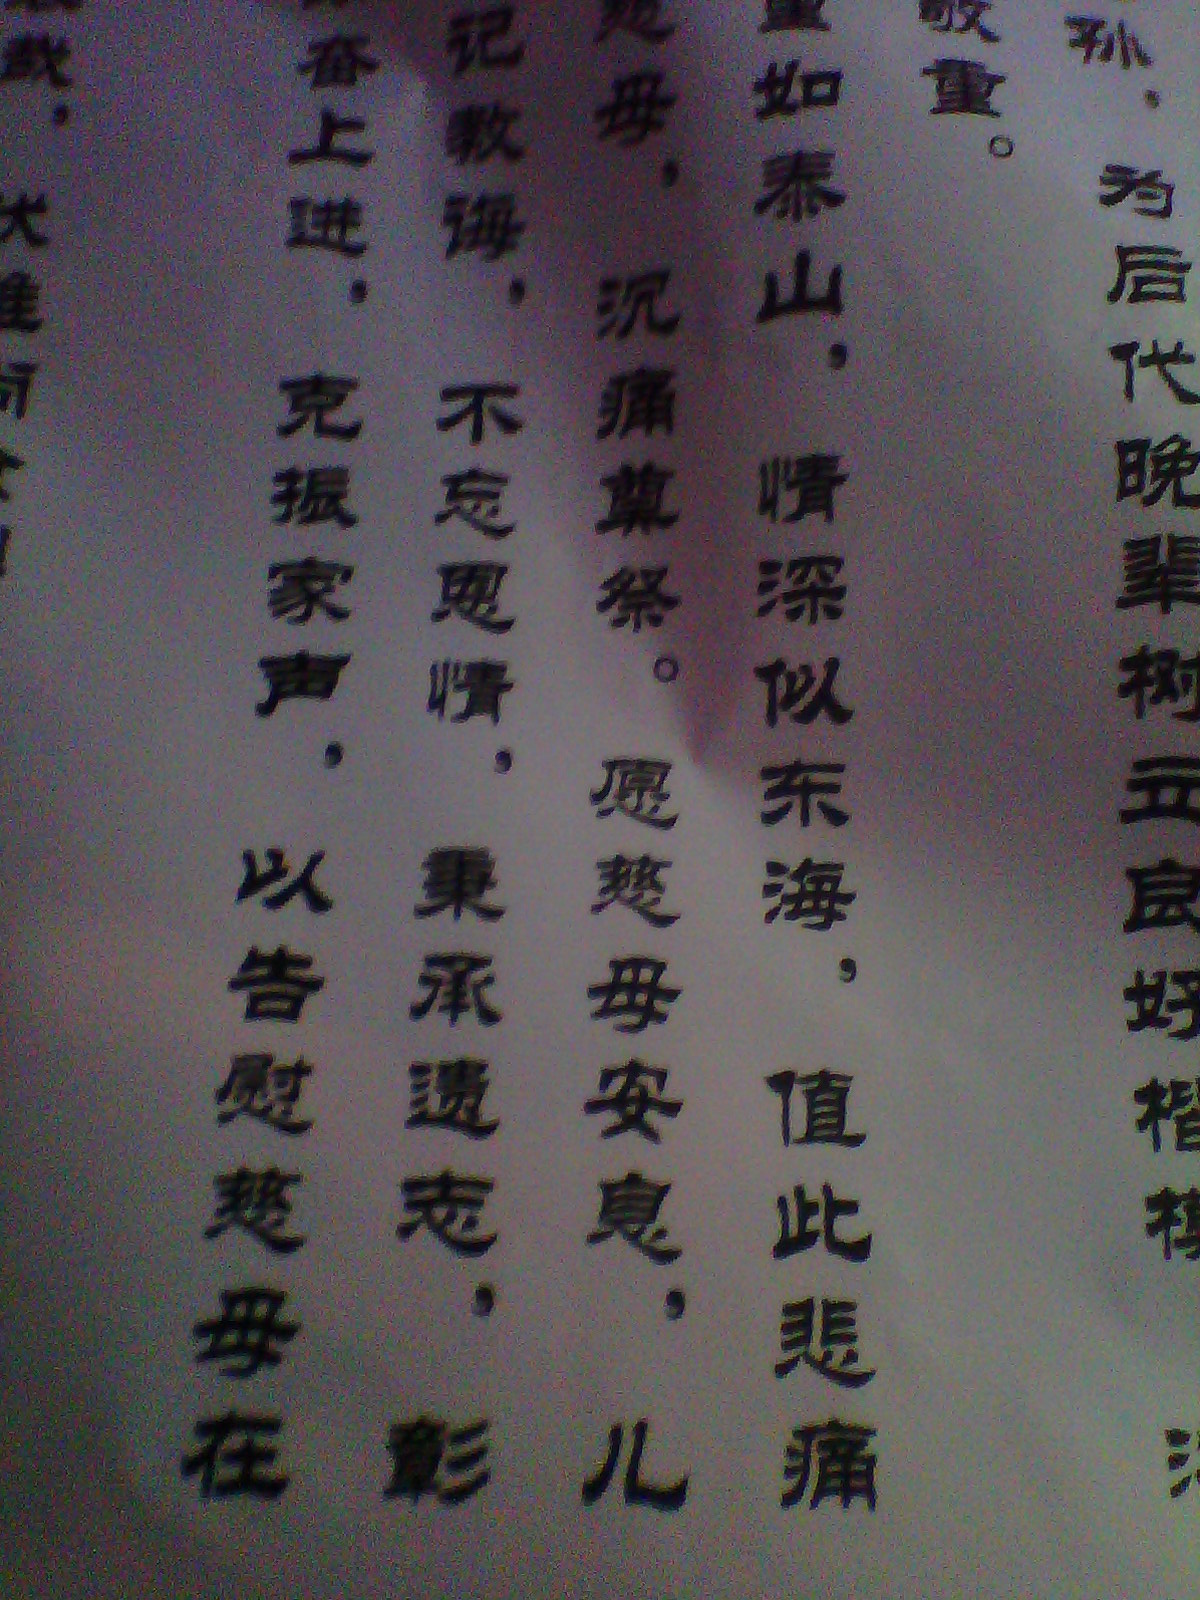 孙，为后代晚辈树立良好楷模
敬重。
重如泰山，情深似东海，值此悲痛
慈母，沉痛奠祭。愿慈母安息，儿
记教诲，不忘恩情，秉承遗志，彰
奋上进，克振家声，以告慰慈母在
哉，伏惟尚